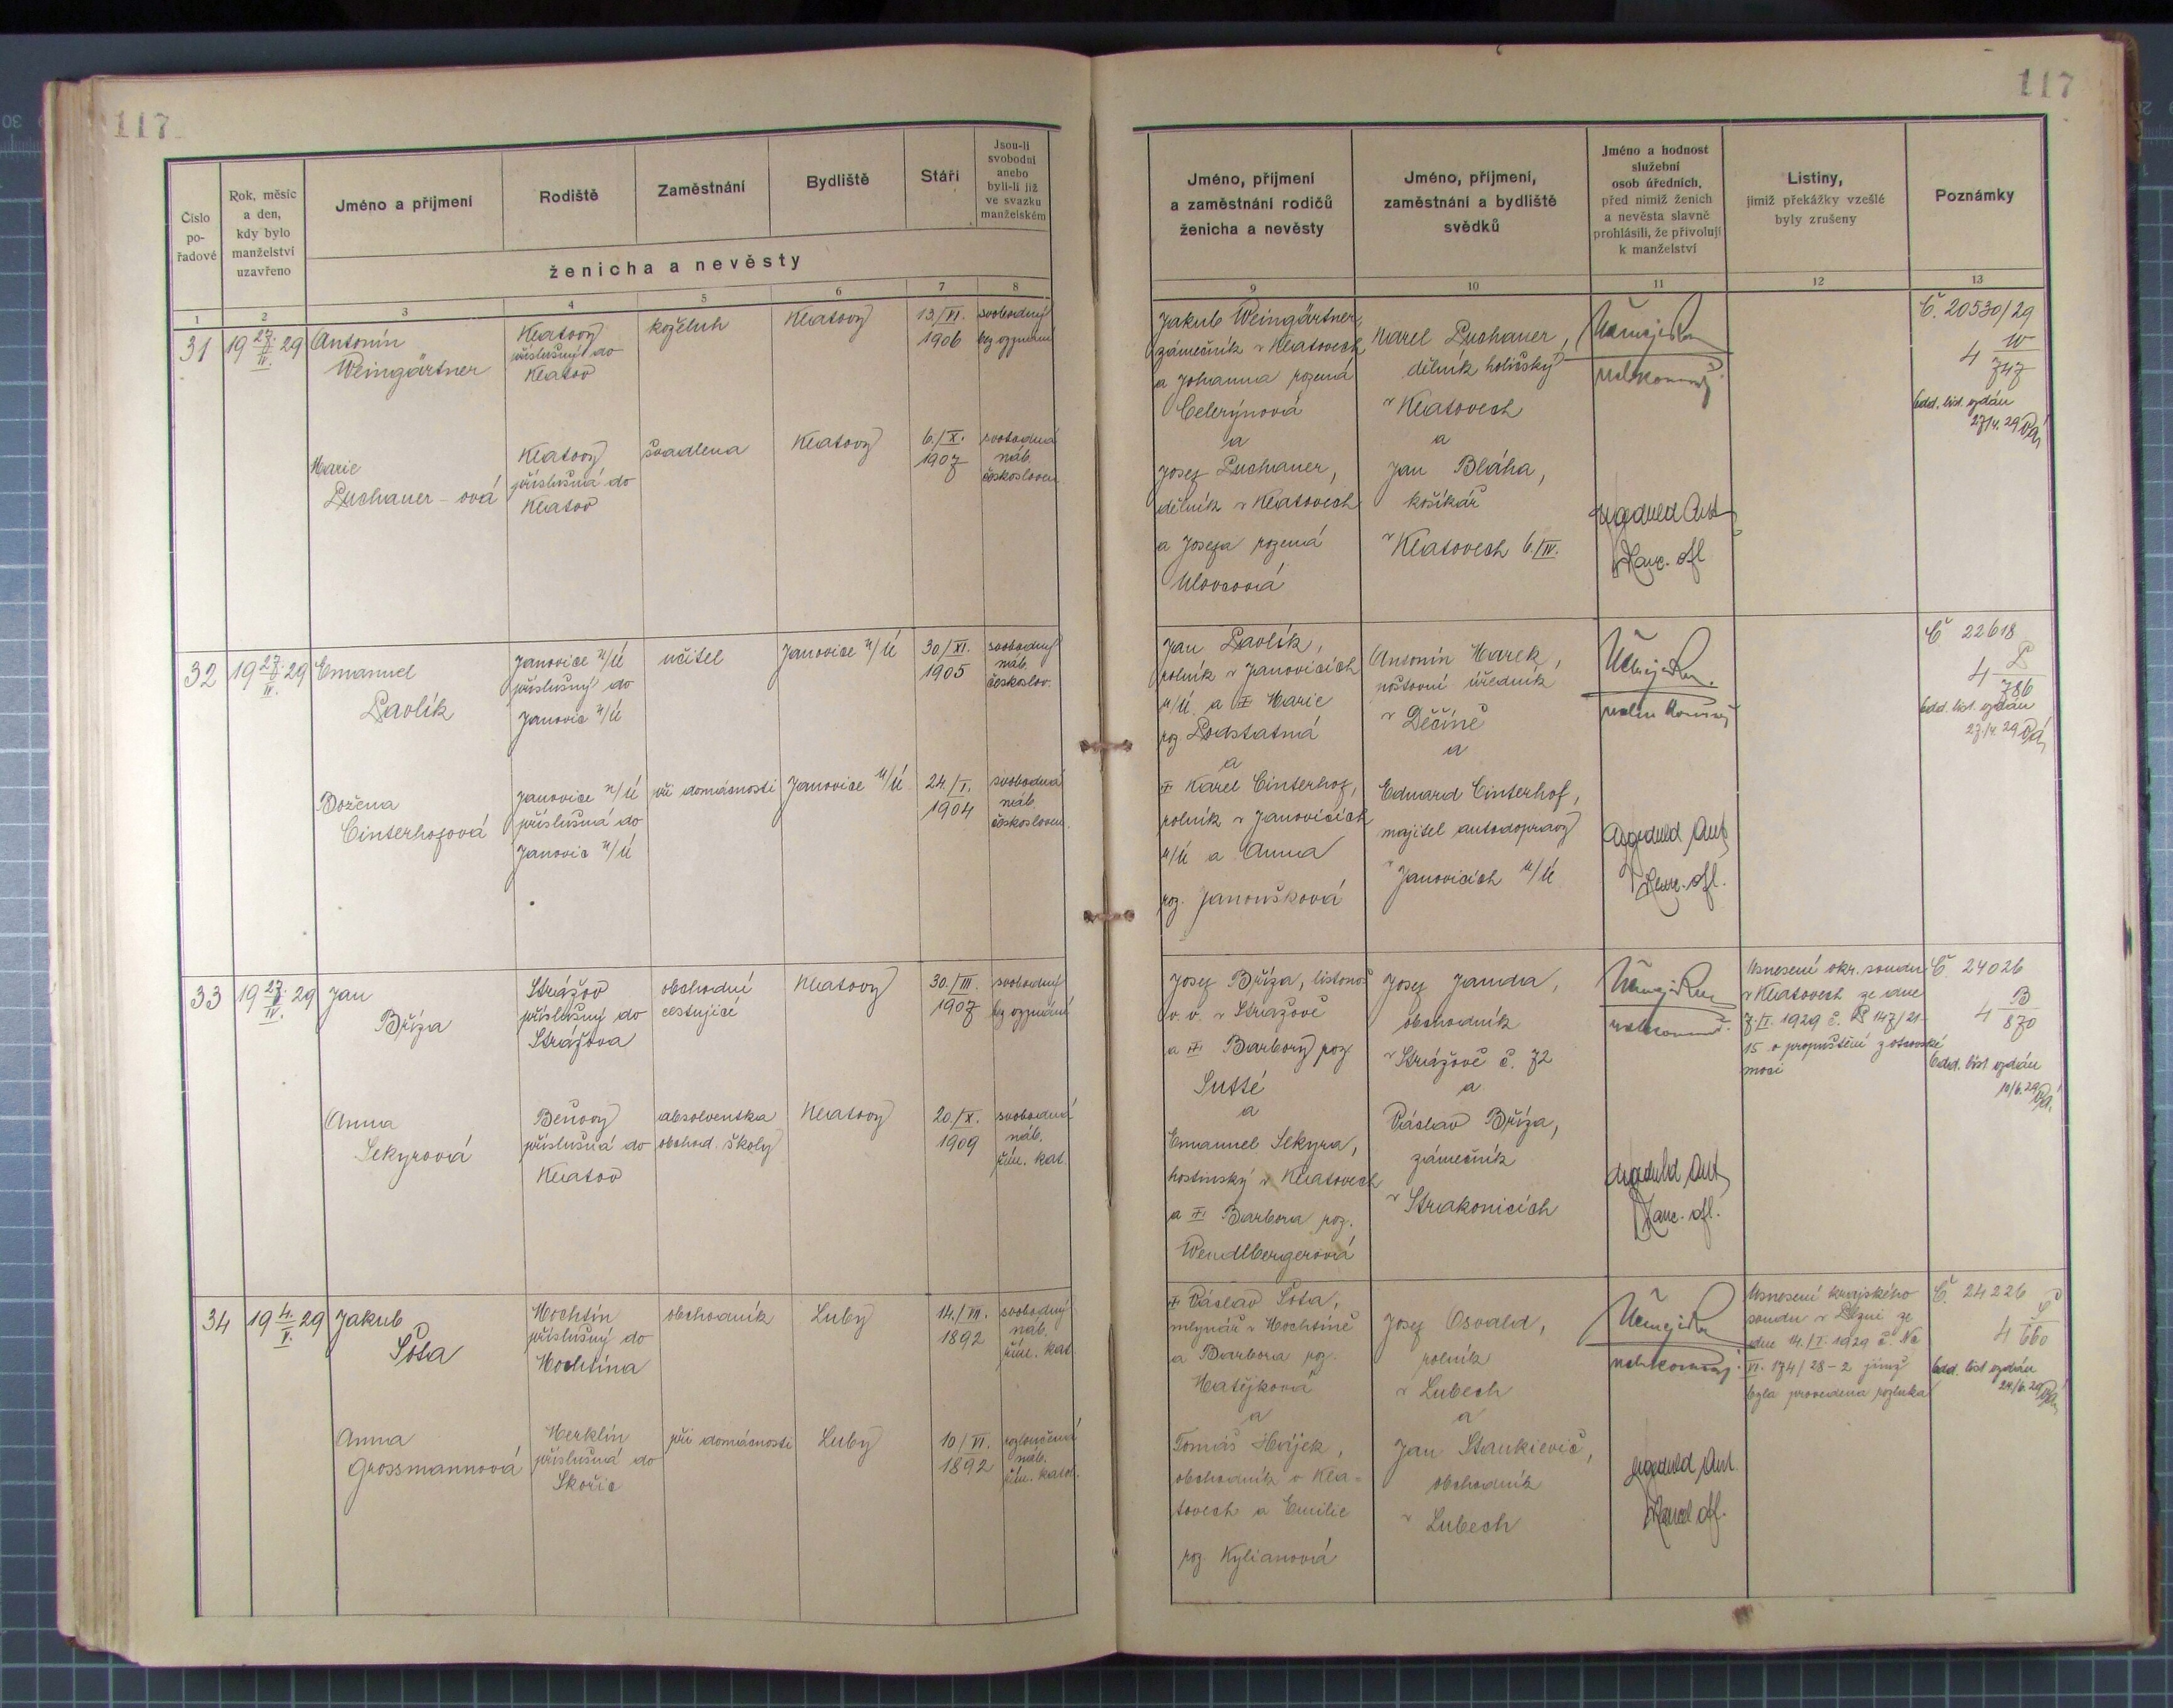 117
117
Číslo pořadové
Rok, měsíc a den, kdy bylo manželství uzavřeno
Jméno a příjmení
Rodiště
Zaměstnání
Bydliště
Stáří
Jsou-li svobodni anebo byli-li již ve svazku manželském
ženicha a nevěsty
Jméno, příjmení a zaměstnání rodičů ženicha a nevěsty
Jméno, příjmení, zaměstnání a bydliště svědků
Jméno a hodnost služební osob úředních, před nimiž ženich a nevěsta slavně prohlásili, že přivolují k manželství
Listiny, jimiž překážky vzešlé byly zrušeny
Poznámky
1 2 3 4 5 6 7 8 9 10 11 12 13
31
19 27./IV. 29
Antonín
Weingärtner
Klatovy
příslušný do
Klatov
koželuh
Klatovy
13/VI.
1906
svobodný
bez vyznání
Marie
Puchauer-ová
Klatovy
příslušná do
Klatov
švadlena
Klatovy
6./X.
1907
svobodná
náb.
českosloven.
Jakub Weingärtner,
zámečník v Klatovech
a Johanna rozená
Celerýnová
a
Josef Puchauer,
dělník v Klatovech
a Josefa rozená
Ulovcová
Karel Puchauer,
dělník holičský
v Klatovech
a
Jan Bláha,
košíkář
v Klatovech 6./IV.
Kanc. ofl
Č. 20530/29
4 W/747
Odd. list. vydán
27/4. 29
32
19 27./IV. 29
Emanuel
Pavlík
Janovice n/Ú
příslušný do
Janovic n/Ú
učitel
Janovice n/Ú
30/XI.
1905
svobodný
náb.
českoslov.
Božena
Cinterhofová
Janovice n/Ú
příslušná do
Janovic n/Ú
při domácnosti
Janovice n/Ú
24./I.
1904
svobodná
náb.
českosloven.
Jan Pavlík,
rolník v Janovicích
n/Ú a Marie
roz Podstatná
a
Karel Cinterhof,
rolník v Janovicích
n/Ú a Anna
roz. Janoušková
Antonín Marek,
poštovní úředník
v Děčíně
a
Eduard Cinterhof,
majitel autodopravy
v Janovicích n/Ú
Kanc. ofl.
Č 22618
4 P/786
Odd. list. vydán
27/4. 29
33
19 27./IV. 29
Jan
Bříza
Strážov
příslušný do
Strážova
obchodní
cestující
Klatovy
30./III.
1907
svobodný
bez vyznání
Anna
Sekyrová
Beňovy
příslušná do
Klatov
absolventka
obchod. školy
Klatovy
20./X.
1909
svobodná
náb.
řím. kat.
Josef Bříza, listonoš
v. v. v Strážově
a Barbory roz
Sutté
a
Emanuel Sekyra,
hostinský v Klatovech
a Barbora roz.
Wendlbergerová
Josef Janda,
obchodník
v Strážově č. 72
a
Václav Bříza,
zámečník
v Strakonicích
Kanc. ofl.
Usnesení okr. soudu
v Klatovech ze dne
7./II. 1929 č. P 147/21-
15 o propuštění z otcovské
moci
Č. 24026
4 B/870
Odd. list vydán
10/6. 29
34
19 4./V. 29
Jakub
Šota
Mochtín
příslušný do
Mochtína
obchodník
Luby
14./VII.
1892
svobodný
náb.
řím. kat.
Anna
Grossmannová
Merklín
příslušná do
Skořic
při domácnosti
Luby
10/VI.
1892
rozloučená
náb.
řím. katol.
Václav Šota,
mlynář v Mochtíně
a Barbora roz.
Matějková
a
Tomáš Hájek,
obchodník v Kla-
tovech a Emilie
roz Kylianová
Josef Osvald,
rolník
v Lubech
a
Jan Stankievič,
obchodník
v Lubech
Usnesení krajského
soudu v Plzni ze
dne 14./I. 1929 č. Nc
VI. 174/28-2 jímž
byla provedena rozluka
Č. 24226
4 Š/660
Odd. list vydán
24/6. 29